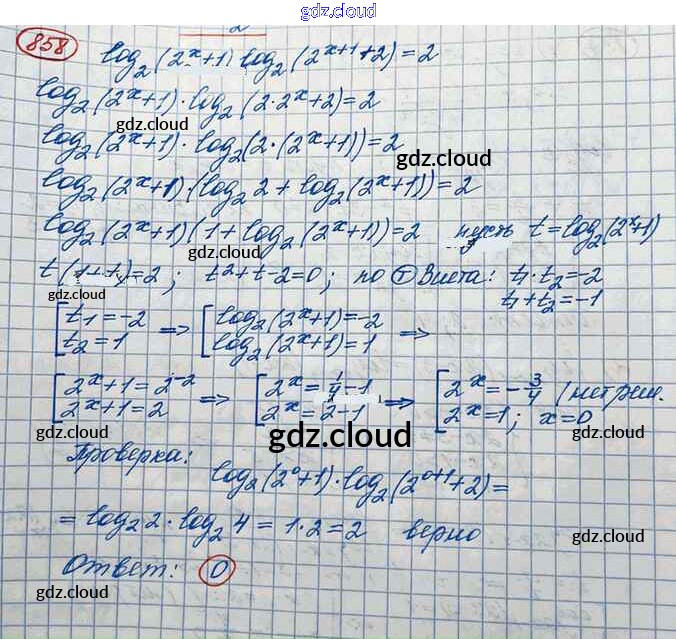 gdz.cloud
858
log₂(2ˣ+1) log₂(2ˣ⁺¹+2)=2
log₂(2ˣ+1)·log₂(2·2ˣ+2)=2
gdz.cloud
log₂(2ˣ+1)·log₂(2·(2ˣ+1))=2
gdz.cloud
log₂(2ˣ+1)·(log₂2+log₂(2ˣ+1))=2
gdz.cloud
log₂(2ˣ+1)(1+log₂(2ˣ+1))=2 пусть t=log₂(2ˣ+1)
gdz.cloud
t(1+t)=2; t²+t-2=0; по Т Виета: t₁·t₂=-2
t₁+t₂=-1
gdz.cloud
[t₁=-2 => [log₂(2ˣ+1)=-2 =>
t₂=1 log₂(2ˣ+1)=1
[2ˣ+1=2⁻² => [2ˣ=1/4-1 => [2ˣ=-3/4 / нет реш.
2ˣ+1=2 2ˣ=2-1 2ˣ=1; x=0
gdz.cloud gdz.cloud gdz.cloud
Проверка:
log₂(2⁰+1)·log₂(2⁰⁺¹+2)=
gdz.cloud
=log₂2·log₂4=1·2=2 верно
gdz.cloud gdz.cloud
Ответ: 0
gdz.cloud gdz.cloud